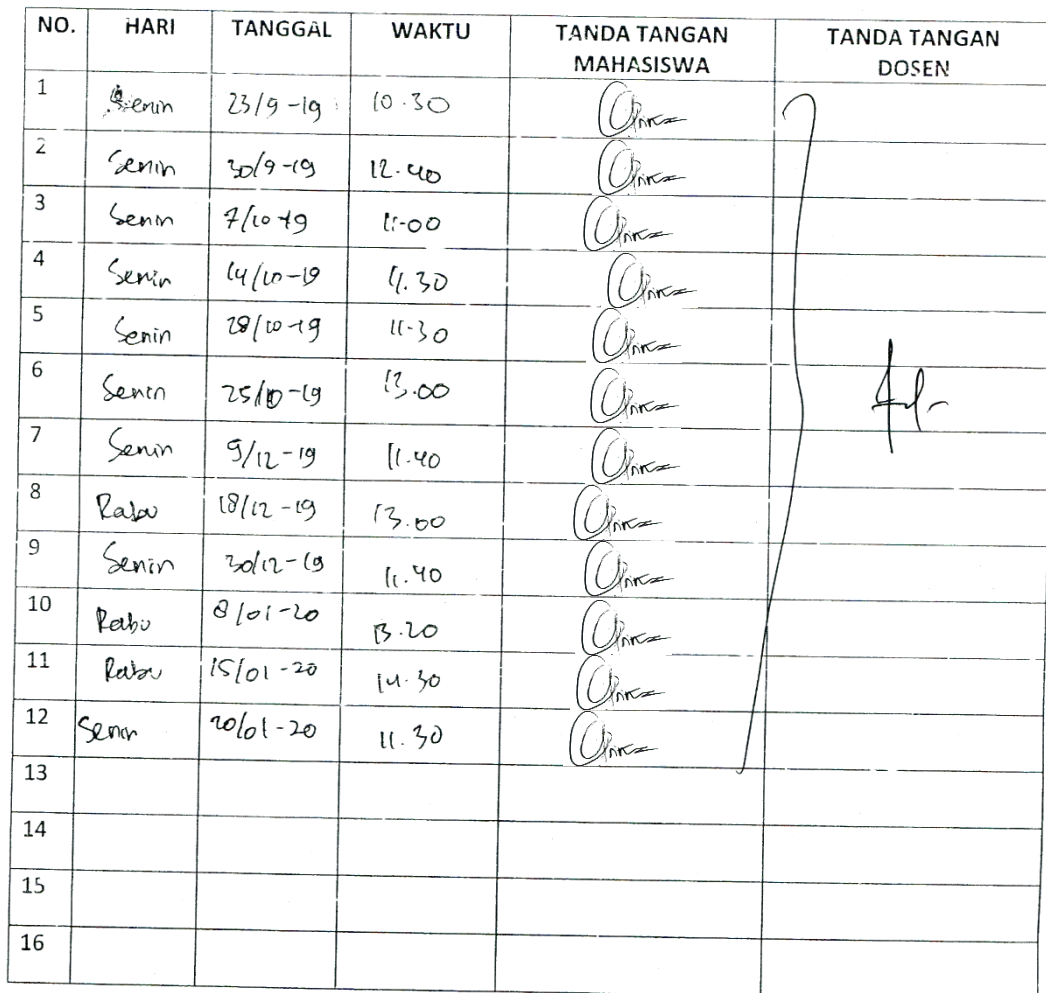 NO. HARI TANGGAL WAKTU TANDA TANGAN MAHASISWA TANDA TANGAN DOSEN
1 Senin 23/9-19 10.30
2 Senin 30/9-19 12.40
3 Senin 7/10-19 11-00
4 Senin 14/10-19 11.30
5 Senin 28/10-19 11-30
6 Senin 25/10-19 13.00
7 Senin 9/12-19 11.40
8 Rabu 18/12-19 13.00
9 Senin 30/12-19 11.40
10 Rabu 8/01-20 13.20
11 Rabu 15/01-20 14.30
12 Senin 20/01-20 11.30
13
14
15
16